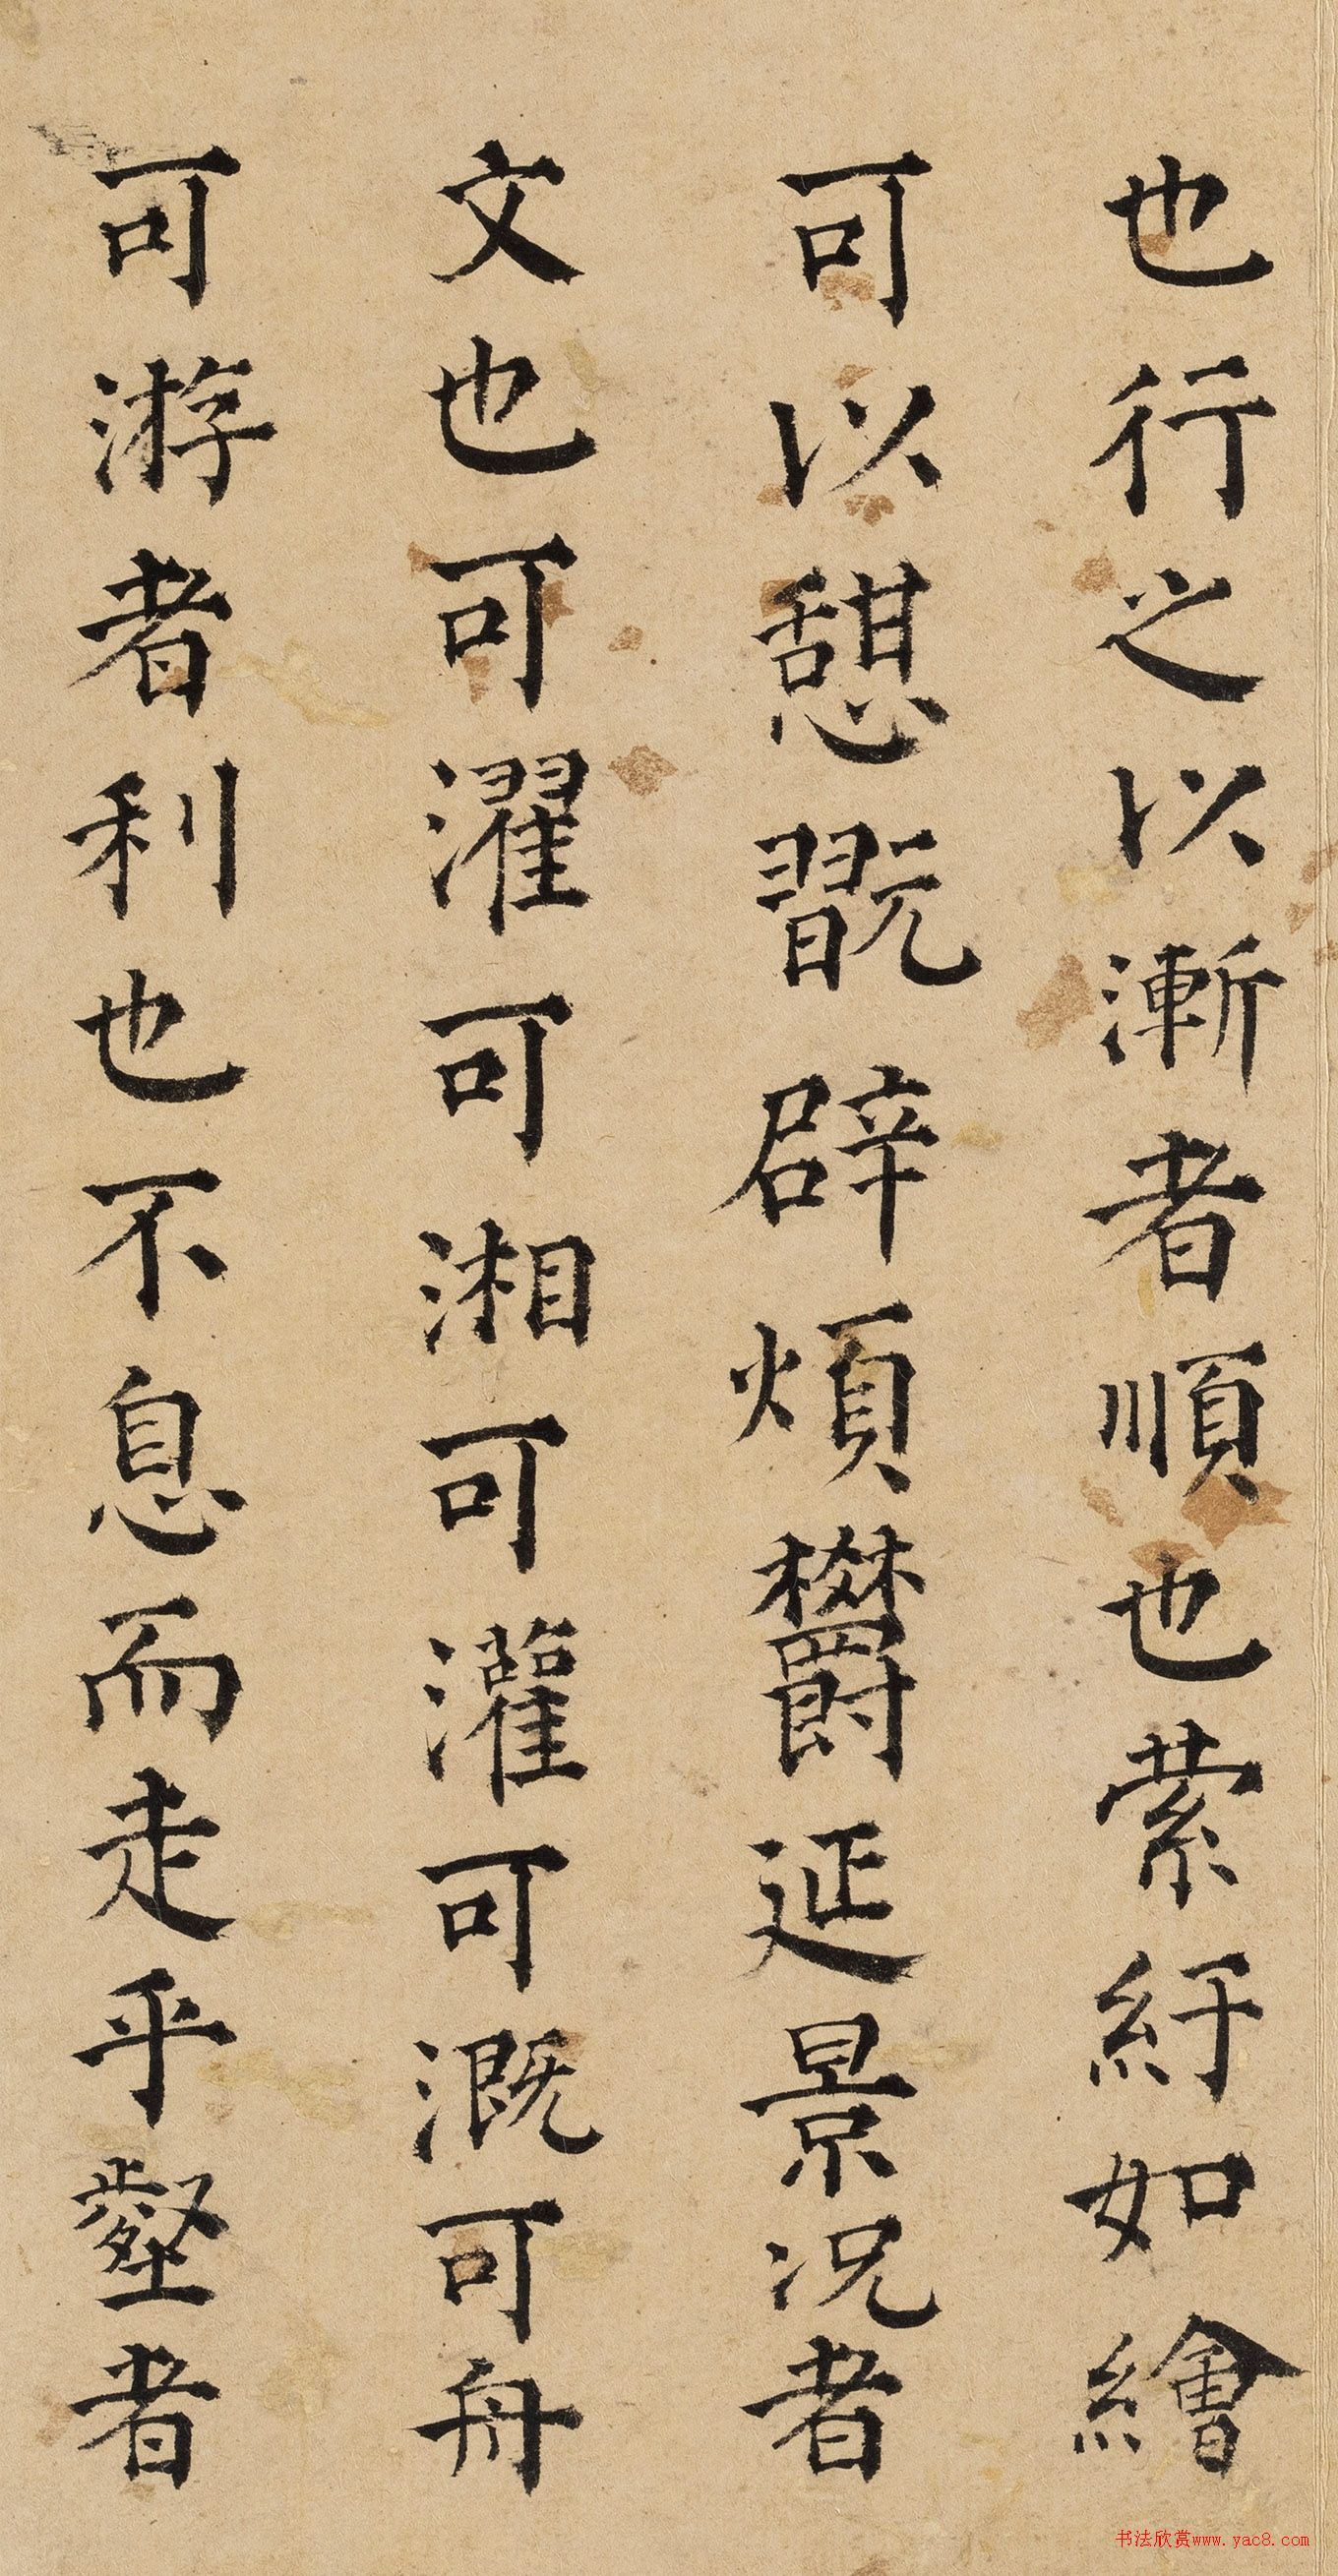 也行之以漸者順也縈紆如繪
可以憩翫辟煩鬱延景況者
文也可濯可湘可灌可溉可舟
可游者利也不息而走乎壑者
书法欣赏www.yac8.com